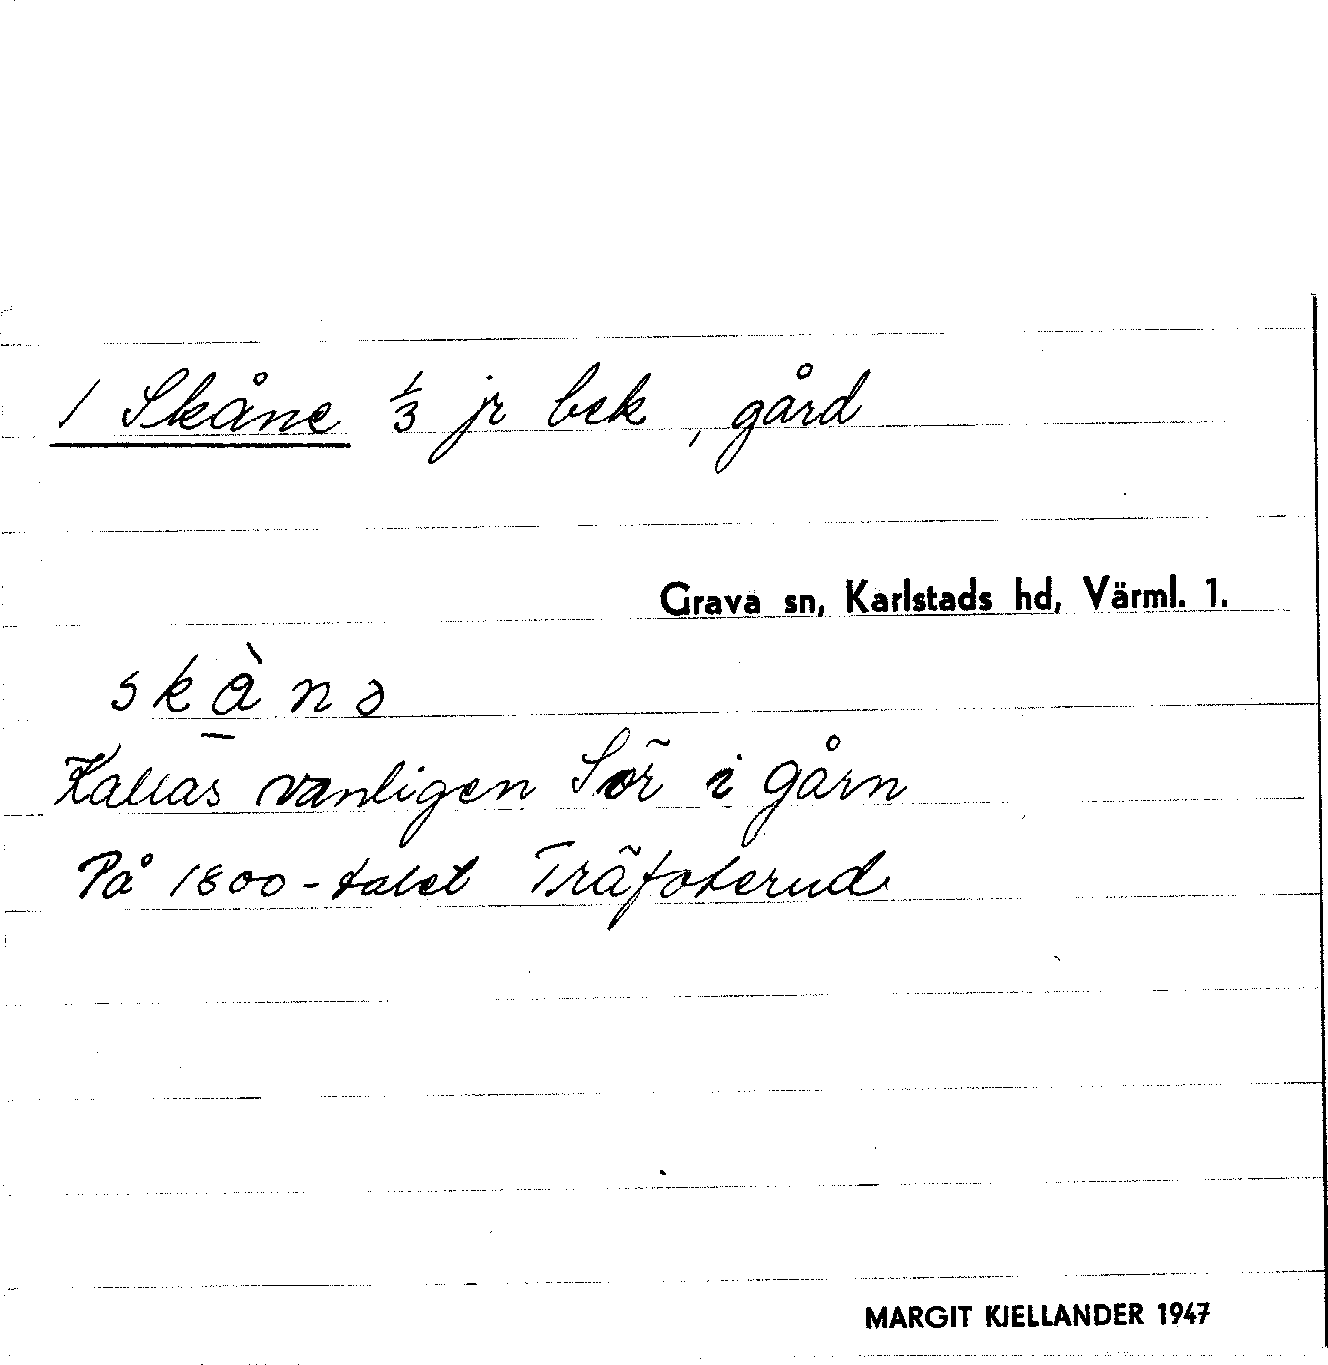 1 Skåne 1/3 jr bek, gård
Grava sn, Karlstads hd, Värml. 1.
skànə
Kallas vanligen Sör i gårn
På 1800-talet Träfoterud
MARGIT KJELLANDER 1947